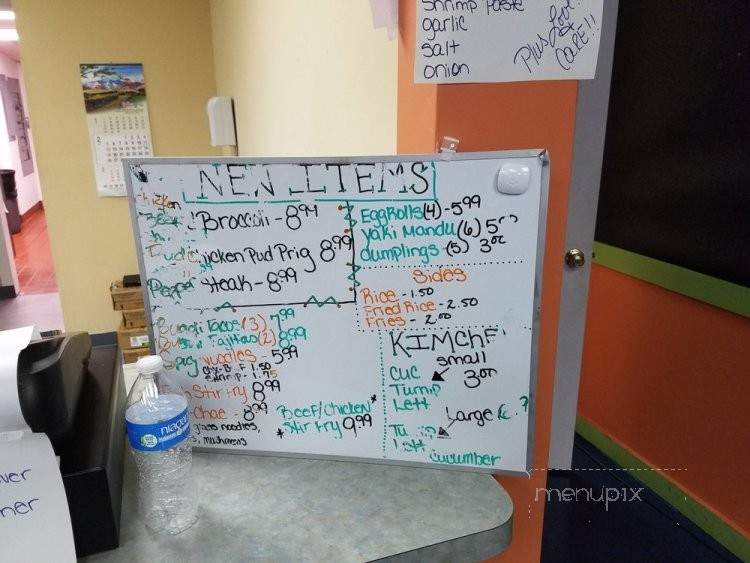 shrimp paste
garlic
salt
onion
Plus Love
CARE!!
NEW ITEMS
Broccoli - 8.99
Chicken Pud Prig 8.99
Pepper Steak - 8.99
Bulgogi Tacos (3) 7.99
Fajitas (2) 8.99
noodles - 5.99
Chx - B - F 1.50
Shrimp - 1.75
Stir Fry 8.99
Chae - 8.99
glass noodles,
mushrooms
Beef/Chicken
*Stir Fry 9.99
Eggrolls (4) - 5.99
Yaki Mandu (6) 5
dumplings - (5) 3.00
Sides
Rice - 1.50
Fried Rice - 2.50
Fries - 2.00
KIMCHI
small
CUC 3.00
Turnip
Lett
Large
cucumber
niagara
menupix